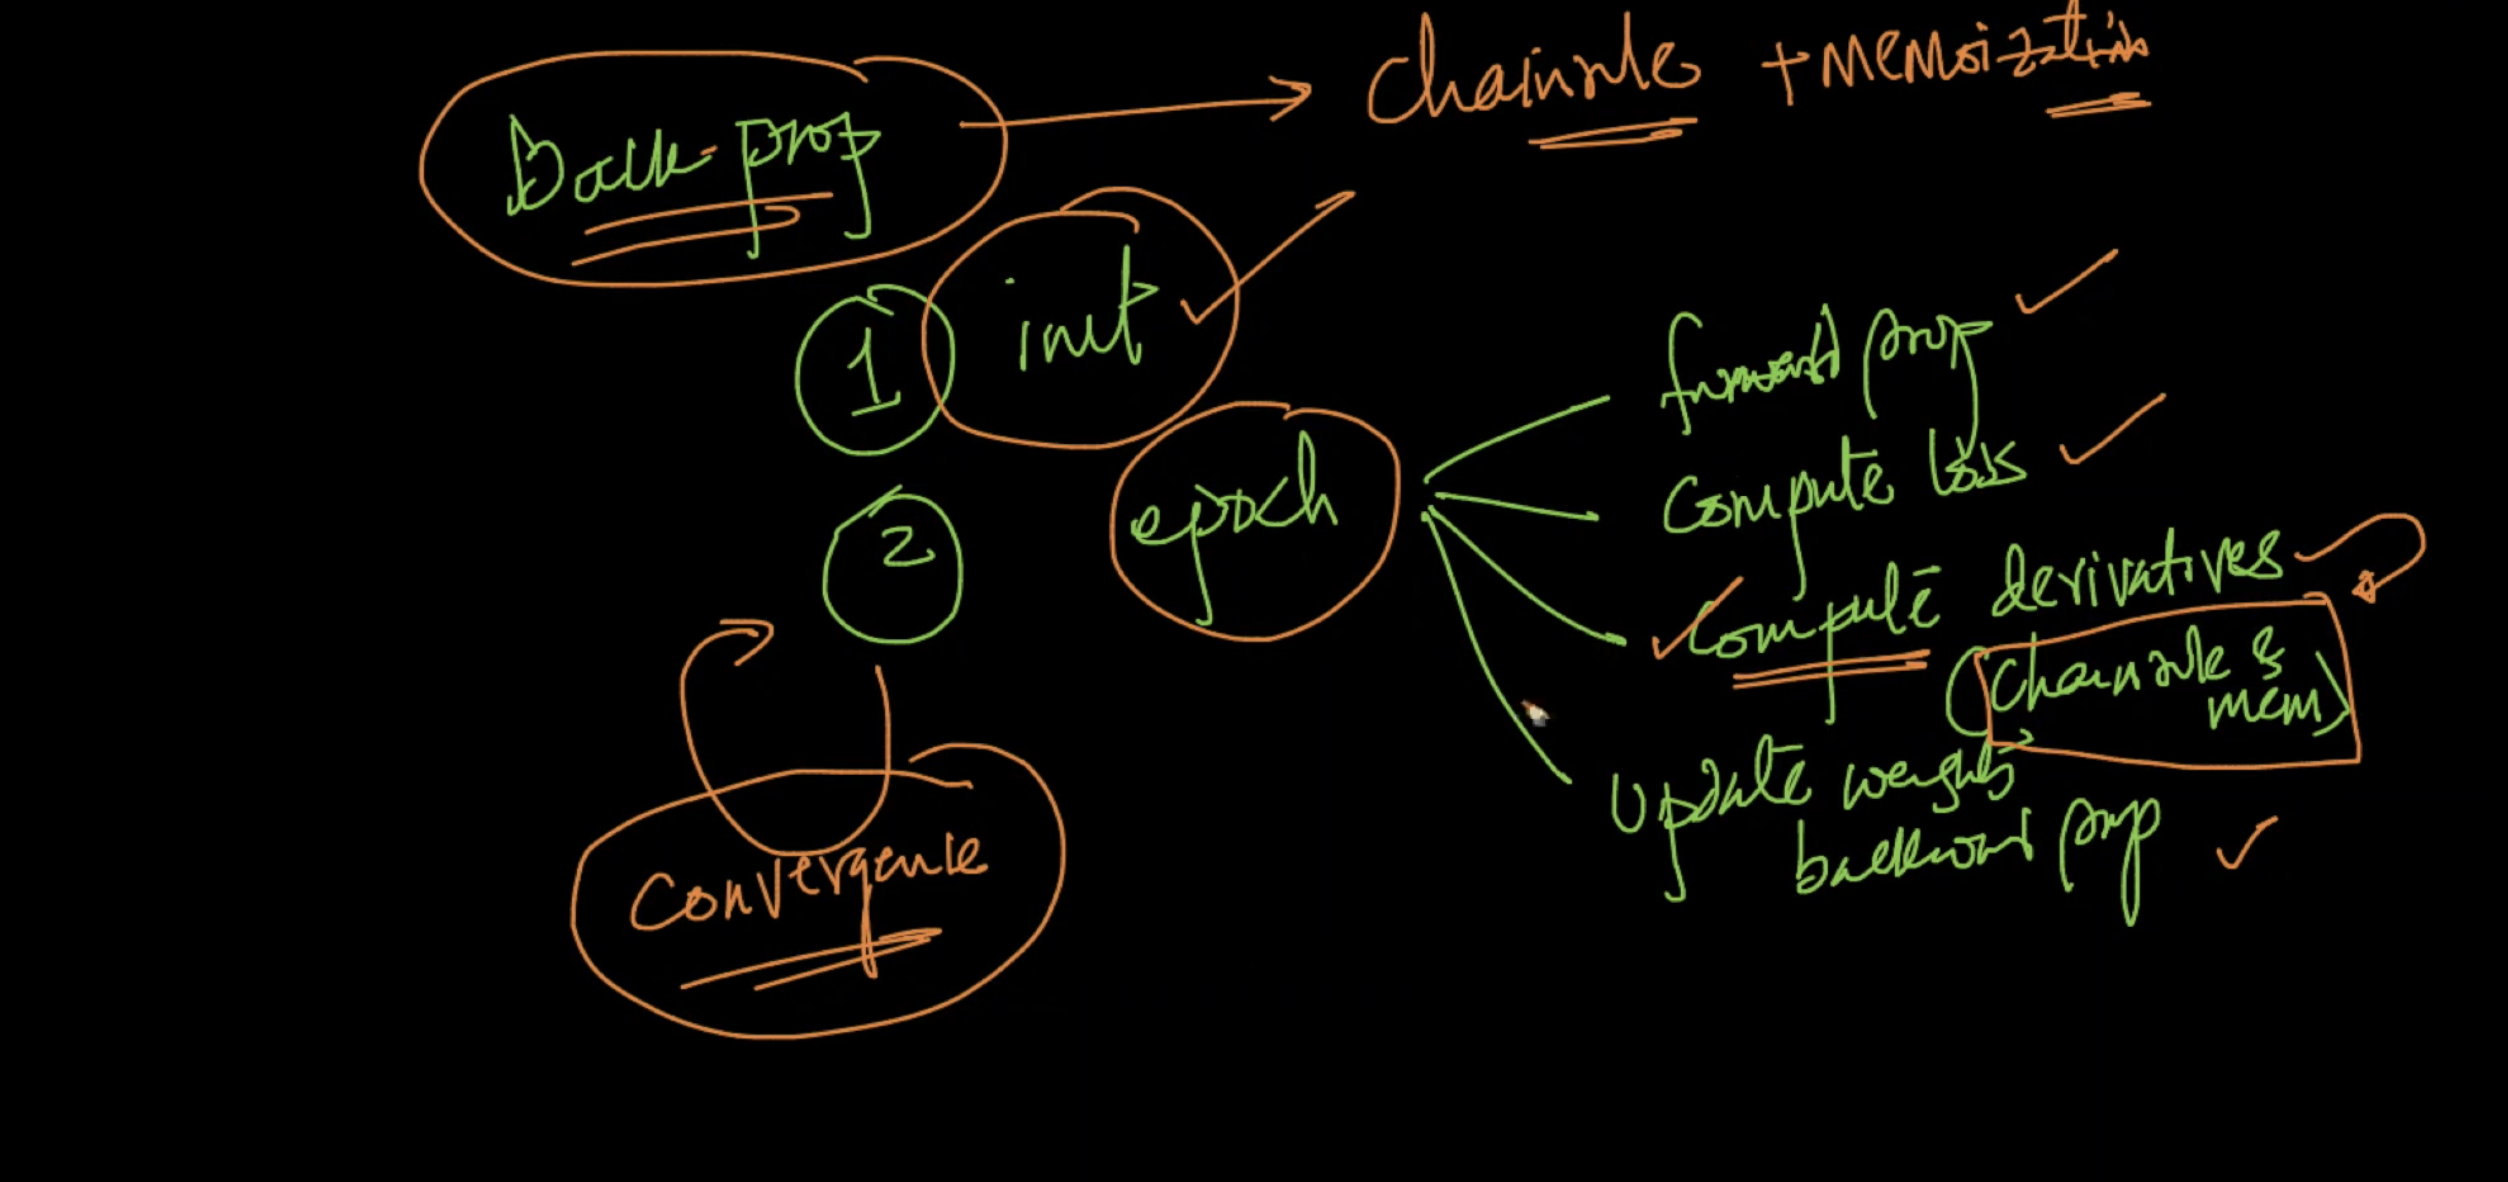 Back-prop
Chainrule + memoization
1 init
forward prop
2 epoch
Compute loss
Compute derivatives
(Chainrule & mem)
Update weights
backward prop
Convergence